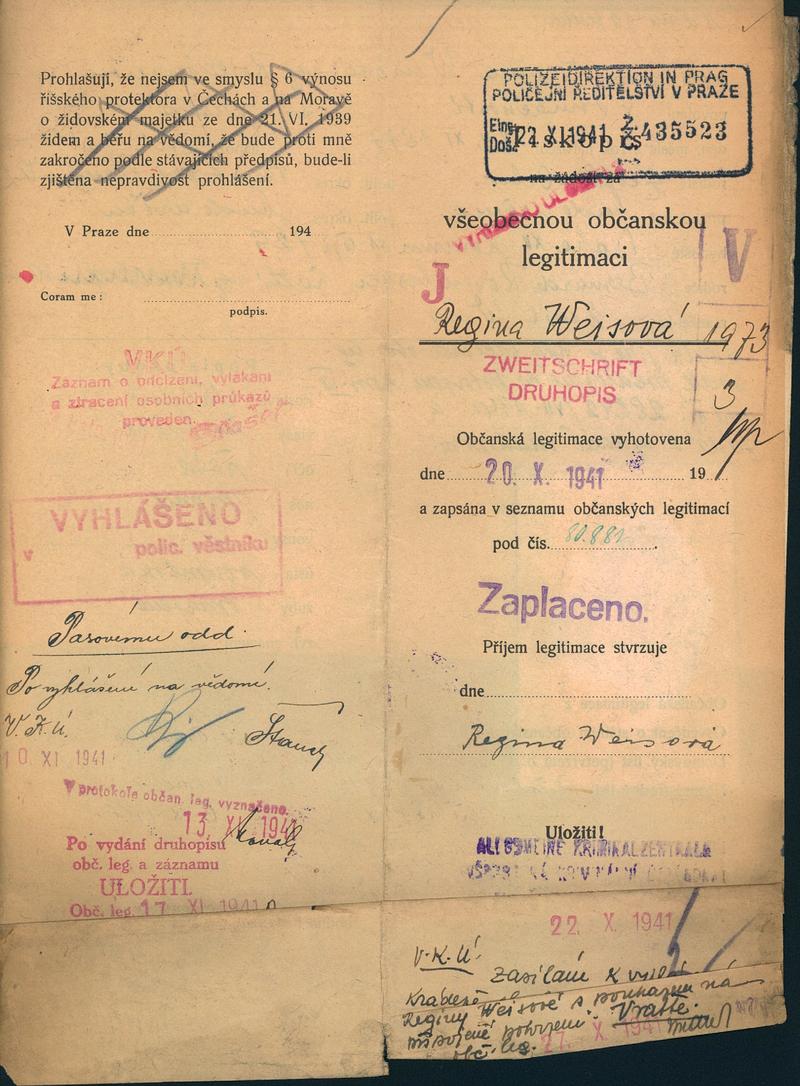 Prohlašuji, že nejsem ve smyslu § 6 výnosu
říšského protektora v Čechách a na Moravě
o židovském majetku ze dne 21. VI. 1939
židem a běřu na vědomí, že bude proti mně
zakročeno podle stávajících předpisů, bude-li
zjištěna nepravdivost prohlášení.
V Praze dne 194
Coram me:
podpis.
VKÚ
Záznam o odcizení, vylákání
a ztracení osobních průkazů
proveden.
VYHLÁŠENO
v polic. věstníku
Pasovému odd.
Po vyhlášení na vědomí.
V. K. Ú.
10 XI 1941
V protokole občan. leg. vyznačeno.
13. XI 1941
Po vydání druhopisu
obč. leg. a záznamu
ULOŽITI.
Obč. leg. 17 XI 1941
POLIZEIDIREKTION IN PRAG
POLICEJNÍ ŘEDITELSTVÍ V PRAZE
22 XI 1941 Ž 435523
na žádost za
všeobecnou občanskou
legitimaci
V
J
Regina Weisová 1973
ZWEITSCHRIFT
DRUHOPIS
3
Občanská legitimace vyhotovena
dne 20. X. 1941 19
a zapsána v seznamu občanských legitimací
pod čís. 80.881
Zaplaceno.
Příjem legitimace stvrzuje
dne
Regina Weisová
Uložiti!
ALLGEMEINE KRIMINALZENTRALE
VŠEOBECNÁ KRIMINÁLNÍ ÚSTŘEDNA
22. X. 1941
V.K.Ú.
Zasílám k
krádeže
Reginy Weisové s poukazem na
připojené potvrzení. Vraťte.
obč. leg. 27. X 1941